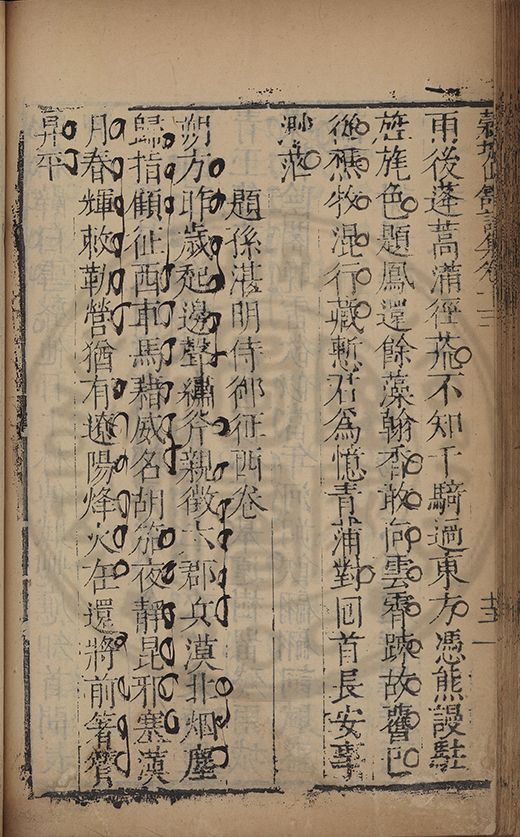 穀城山館詩集卷十三
雨後蓬蒿滿徑荒不知千騎過東方憑熊謾駐
旌旄色題鳳還餘藻翰香敢向雲霄疎故舊已
從樵牧混行藏慙君為憶青蒲對回首長安事
渺茫
題孫湛明侍御征西卷
朔方昨歲起邊聲繡斧親徵六郡兵漠北烟塵
歸指顧征西車馬藉威名胡笳夜靜昆邪塞漢
月春輝敕勒營猶有遼陽烽火在還將前箸贊
昇平